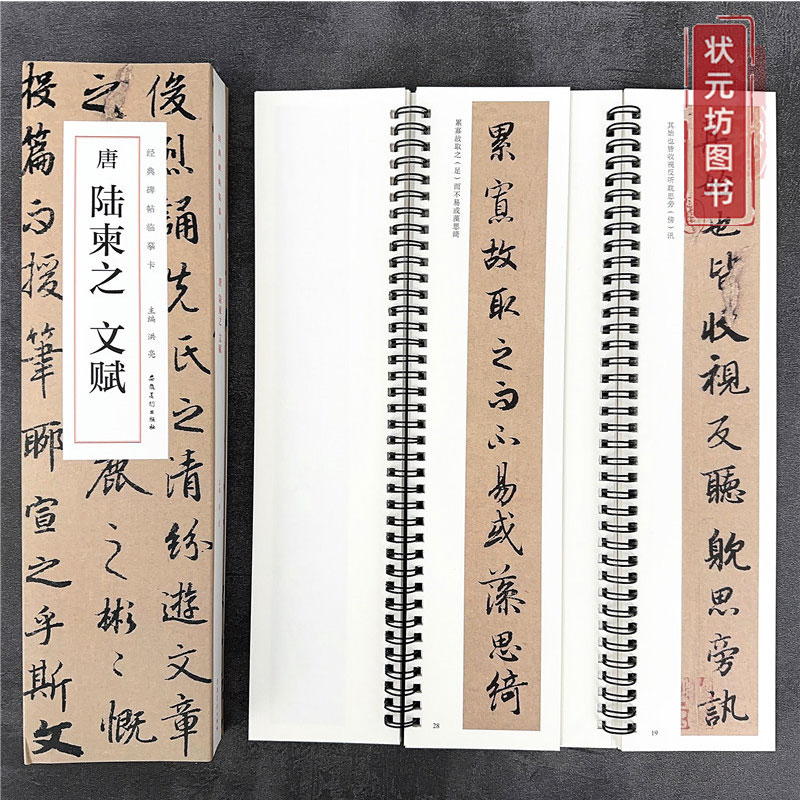 俊烈誦先氏之清紛遊文章
之
麗之彬〻慨
投篇而援筆聊宣之乎斯文
经典碑帖临摹卡
唐 陆柬之 文赋
主编 洪亮
安徽美术出版社
唐 陆柬之 文赋
累寡故取之（足）而不易或藻思绮
累寡故取之而不易或藻思綺
28
其始也皆收视反听耽思旁（傍）讯
也皆收視反聽躭思旁訊
19
状元坊图书